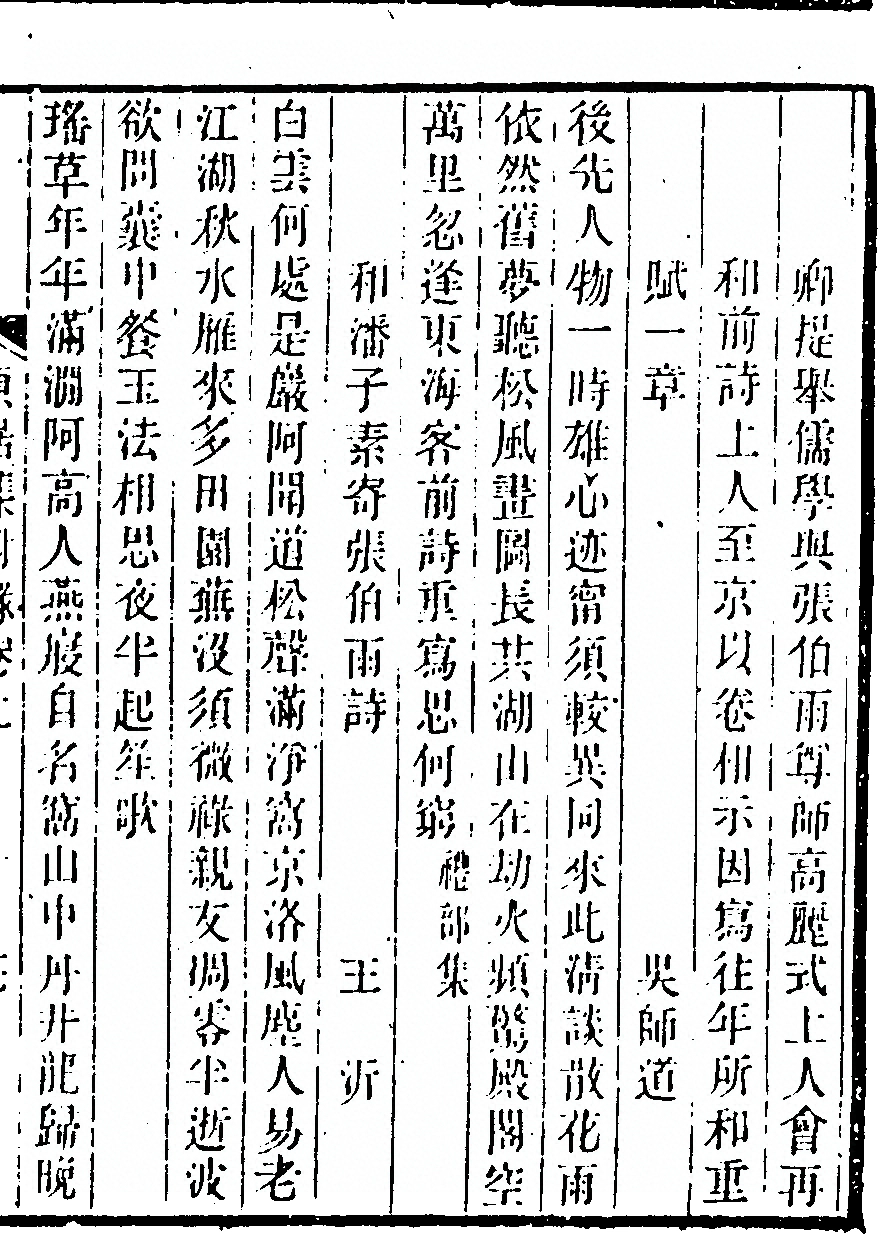 卿提舉儒學與張伯雨尊師高麗式上人會再
和前詩上人至京以卷相示因寫往年所和重
賦一章　吳師道
後先人物一時雄心迹甯須較異同來此淸談散花雨
依然舊夢聽松風畫圖長共湖山在劫火頻驚殿閣空
萬里忽逢東海客前詩重寫思何窮禮部集
和潘子素寄張伯雨詩　王沂
白雲何處是巖阿聞道松聲滿淨窩京洛風塵人易老
江湖秋水雁來多田園蕪沒須微祿親友凋零半逝波
欲問囊中餐玉法相思夜半起笙歌
瑤草年年滿澗阿高人燕寢自名窩山中丹井龍歸晚